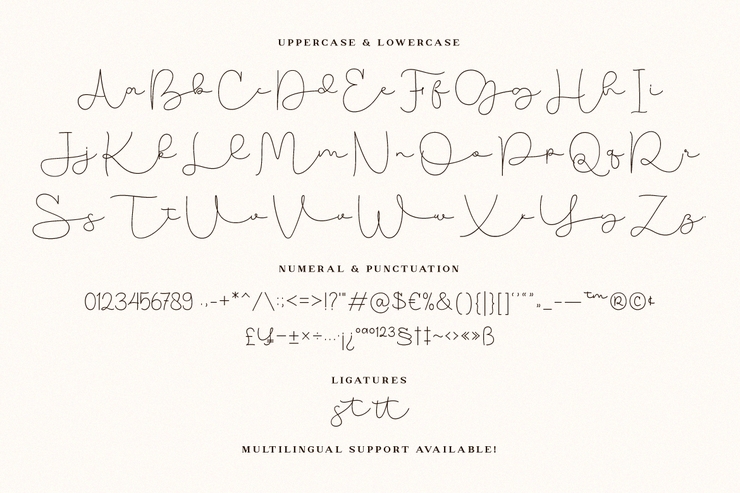 UPPERCASE & LOWERCASE
Aa Bb Cc Dd Ee Ff Gg Hh Ii
Jj Kk Ll Mm Nn Oo Pp Qq Rr
Ss Tt Uu Vv Ww Xx Yy Zz
NUMERAL & PUNCTUATION
0123456789 .,-+*^/\:;<=>!?'"#@$€%&(){|}[]‘’“”„_–—™®©¢
£¥−±×÷…·¡¿ºªº123§†‡~‹›«»ß
LIGATURES
st tt
MULTILINGUAL SUPPORT AVAILABLE!